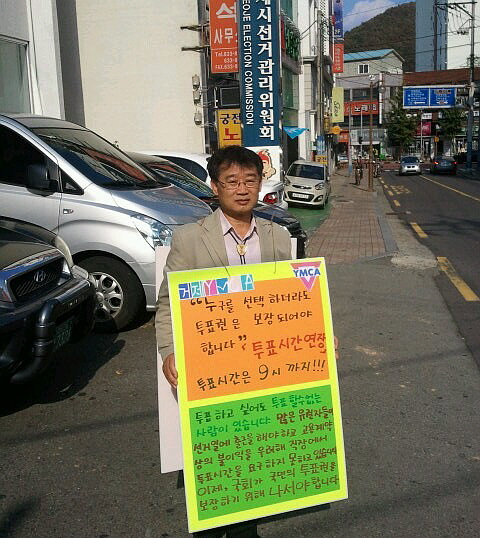 석
사무소
Tel.633-
633-
EOJE ELECTION COMMISSION
제시선거관리위원회
궁전
노
거제YMCA
YMCA
"누구를 선택 하더라도
투표권은 보장 되어야
합니다" 투표시간연장
투표시간은 9시 까지!!!
투표 하고 싶어도 투표 할수없는
사람이 있습니다 많은 유권자들이
선거일에 출근을 해야하고 고용계약
상의 불이익을 우려해 직장에서
투표시간을 요구 하지 못하고 있습니다
이제, 국회가 국민의 투표권을
보장하기 위해 나서야합니다